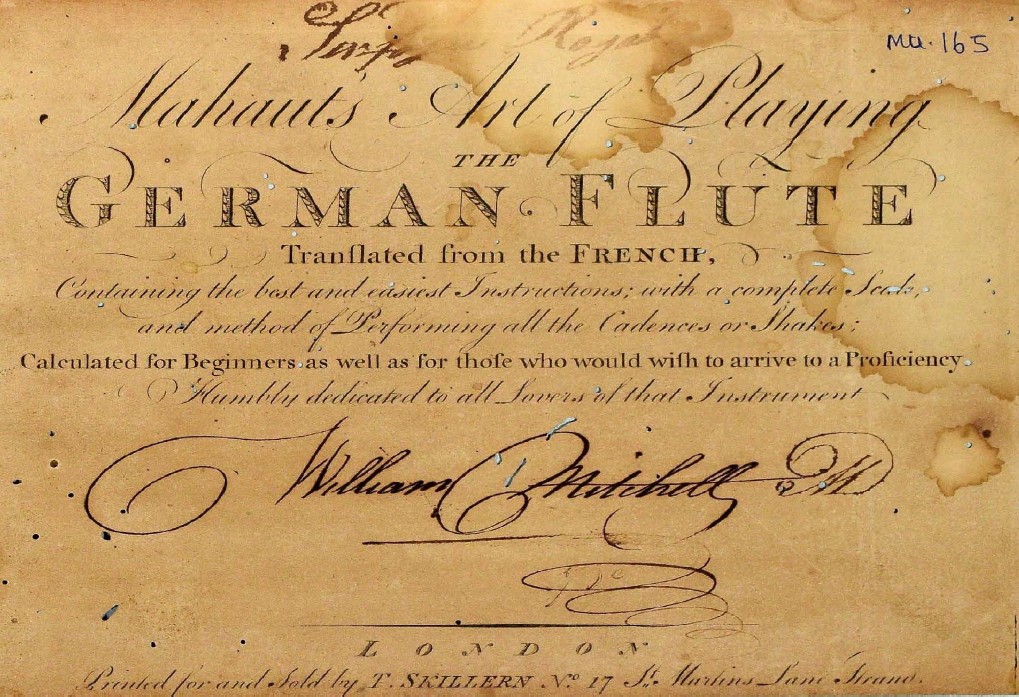 Mu. 165
Mahauts Art of Playing
THE
GERMAN FLUTE
Tranſlated from the FRENCH,
Containing the best and easiest Instructions; with a complete Scale,
and method of Performing all the Cadences or Shakes;
Calculated for Beginners as well as for thoſe who would wiſh to arrive to a Proficiency.
Humbly dedicated to all Lovers of that Instrument
William Mitchell
LONDON
Printed for and Sold by T. SKILLERN No. 17 St. Martins Lane Strand.